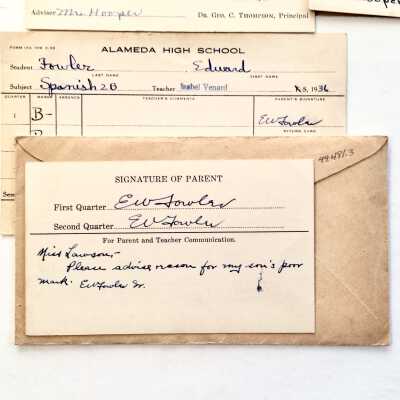 Adviser Mrs Hooper
DR. GEO. C. THOMPSON, Principal
Hooper
ALAMEDA HIGH SCHOOL
Student Fowler Edward
LAST NAME FIRST NAME
Subject Spanish 2B Teacher Isabel Venard S, 1936
QUARTER MARKS ABSENCE TEACHER'S COMMENTS PARENT'S SIGNATURE
1 B-
EW Fowler
RETURN CARD
B-
49.481.3
SIGNATURE OF PARENT
First Quarter EW Fowler
Second Quarter EW Fowler
For Parent and Teacher Communication.
Miss Lawson,-
Please advise reason for my son's poor
mark. EW Fowler Sr.